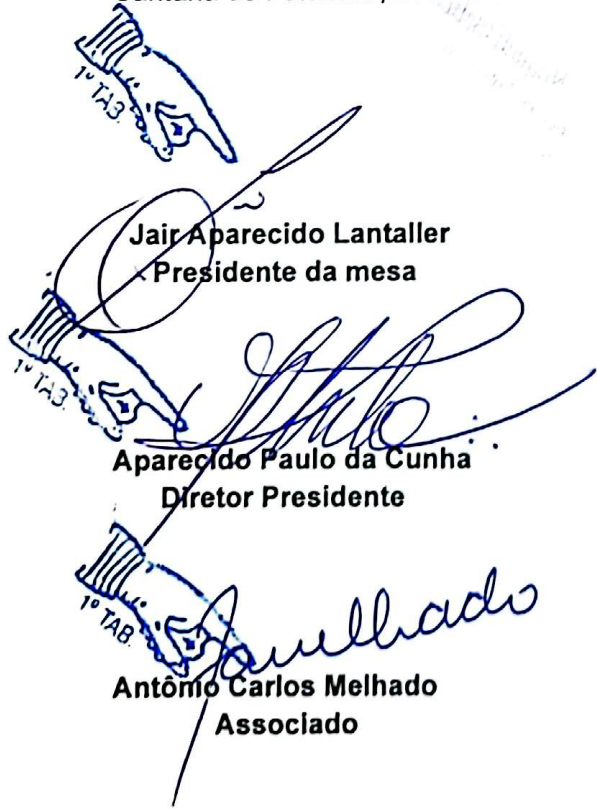 1º TAB.
Jair Aparecido Lantaller
Presidente da mesa
1º TAB.
Aparecido Paulo da Cunha
Diretor Presidente
1º TAB.
Antônio Carlos Melhado
Associado